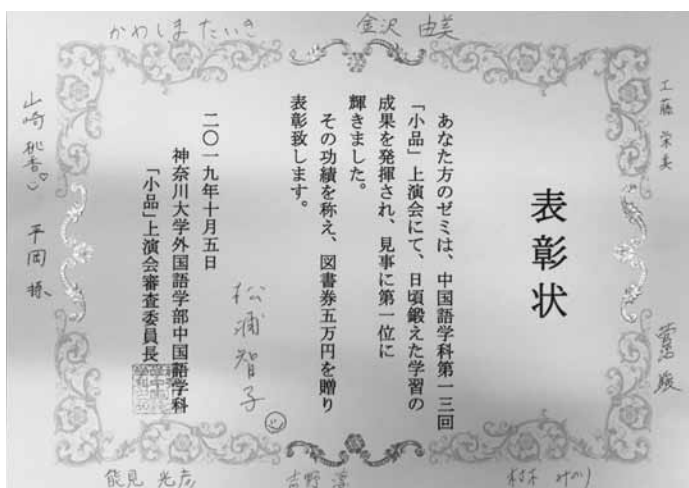 かわしま たいき
金沢 由美
工藤 栄美
山崎 桃香♡
平岡
表彰状
あなた方のゼミは、中国語学科第一三回
「小品」上演会にて、日頃鍛えた学習の
成果を発揮され、見事に第一位に
輝きました。
その功績を称え、図書券五万円を贈り
表彰致します。
二〇一九年十月五日
神奈川大学外国語学部中国語学科
「小品」上演会審査委員長
松浦智子
能見 光彦
吉野